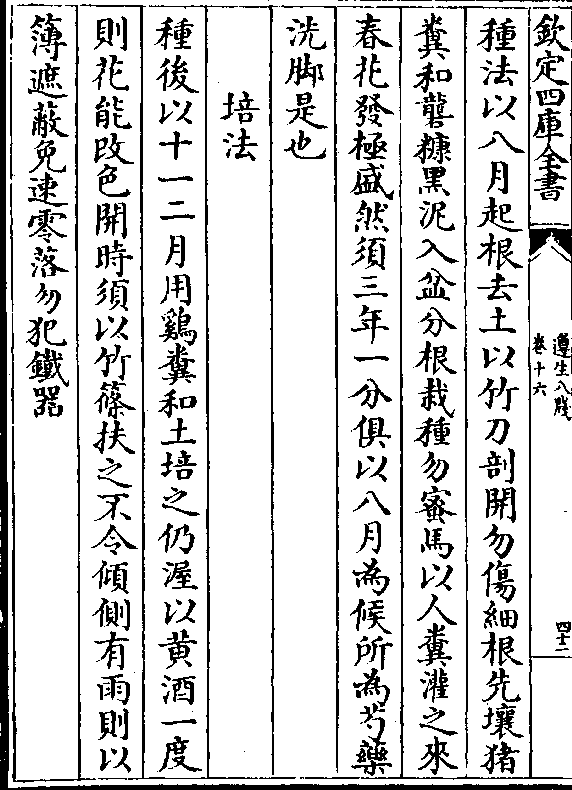 欽定四庫全書
遵生八牋
卷十六
四十二
種法以八月起根去土以竹刀剖開勿傷細根先壤猪
糞和礱糠黑泥入盆分根栽種勿密馬以人糞灌之來
春花發極盛然須三年一分俱以八月為候所為芍藥
洗脚是也
培法
種後以十一二月用鷄糞和土培之仍渥以黄酒一度
則花能改色開時須以竹篠扶之不令傾側有雨則以
簿遮蔽免速零落勿犯鐵器